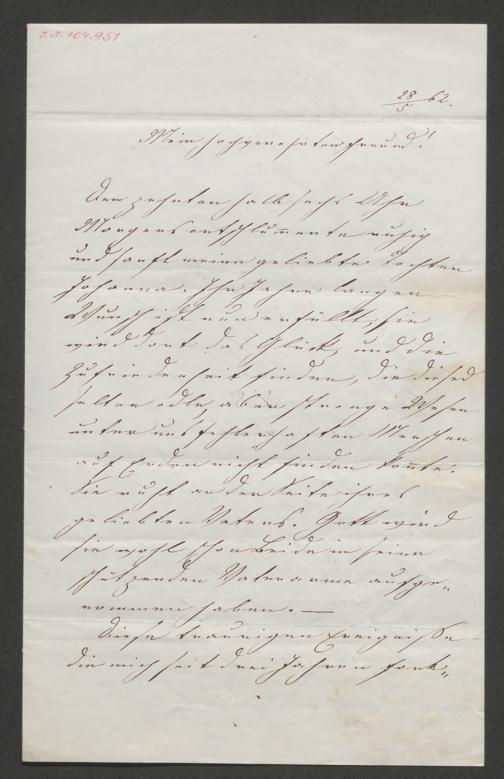 I.N. 104.951
28/5 62.
Mein hochverehrter Freund!
Den zehnten halb sechs Uhr
Morgens entschlum̄erte ruhig
und sanft meine geliebte Tochter
Johanna. Ihr Jahre langer
Wunsch ist nun erfüllt, sie
wird dort das Glück, und die
Zufriedenheit finden, die dieses
selten edle, aber strenge Wesen
unter uns fehlerhaften Menschen
auf Erden nicht finden kon̄te.
Sie ruht an der Seite ihres
geliebten Vaters. Gott wird
sie wohl schon Beide in seine
schützenden Vaterarme aufge„
nommen haben. —
Diese traurigen Ereignisse
die mich seit drei Jahren fort„